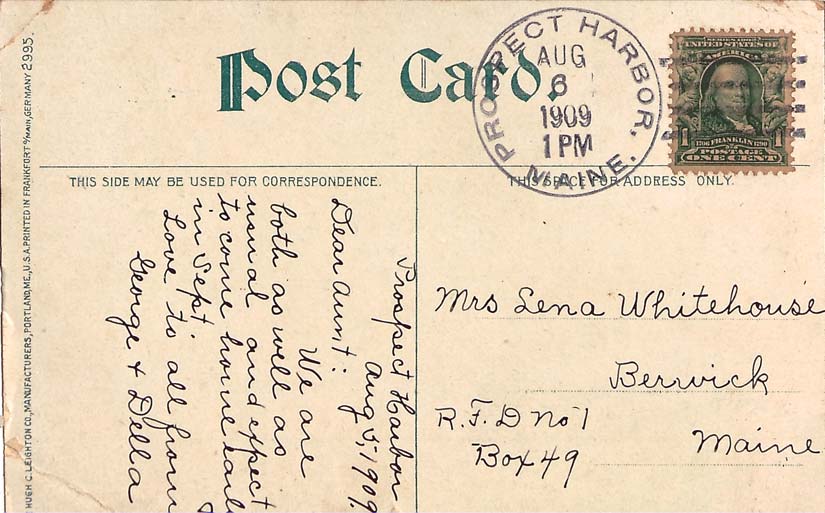 Post Card.
PROSPECT HARBOR,
MAINE.
AUG
6
1909
1 PM
SERIES 1902
UNITED STATES OF
AMERICA
1
1
1706 FRANKLIN 1790
POSTAGE
ONE CENT
THIS SIDE MAY BE USED FOR CORRESPONDENCE.
THIS SPACE FOR ADDRESS ONLY.
Prospect Harbor
Aug 5, 1909.
Dear Aunt:
We are
both as well as
usual and expect
to come home
in Sept
Love to all from
George & Della
Mrs Lena Whitehouse
Berwick
Maine
R.F.D No 1
Box 49
HUGH C. LEIGHTON CO., MANUFACTURERS, PORTLAND, ME., U.S.A. PRINTED IN FRANKFORT o/MAIN, GERMANY 2995.